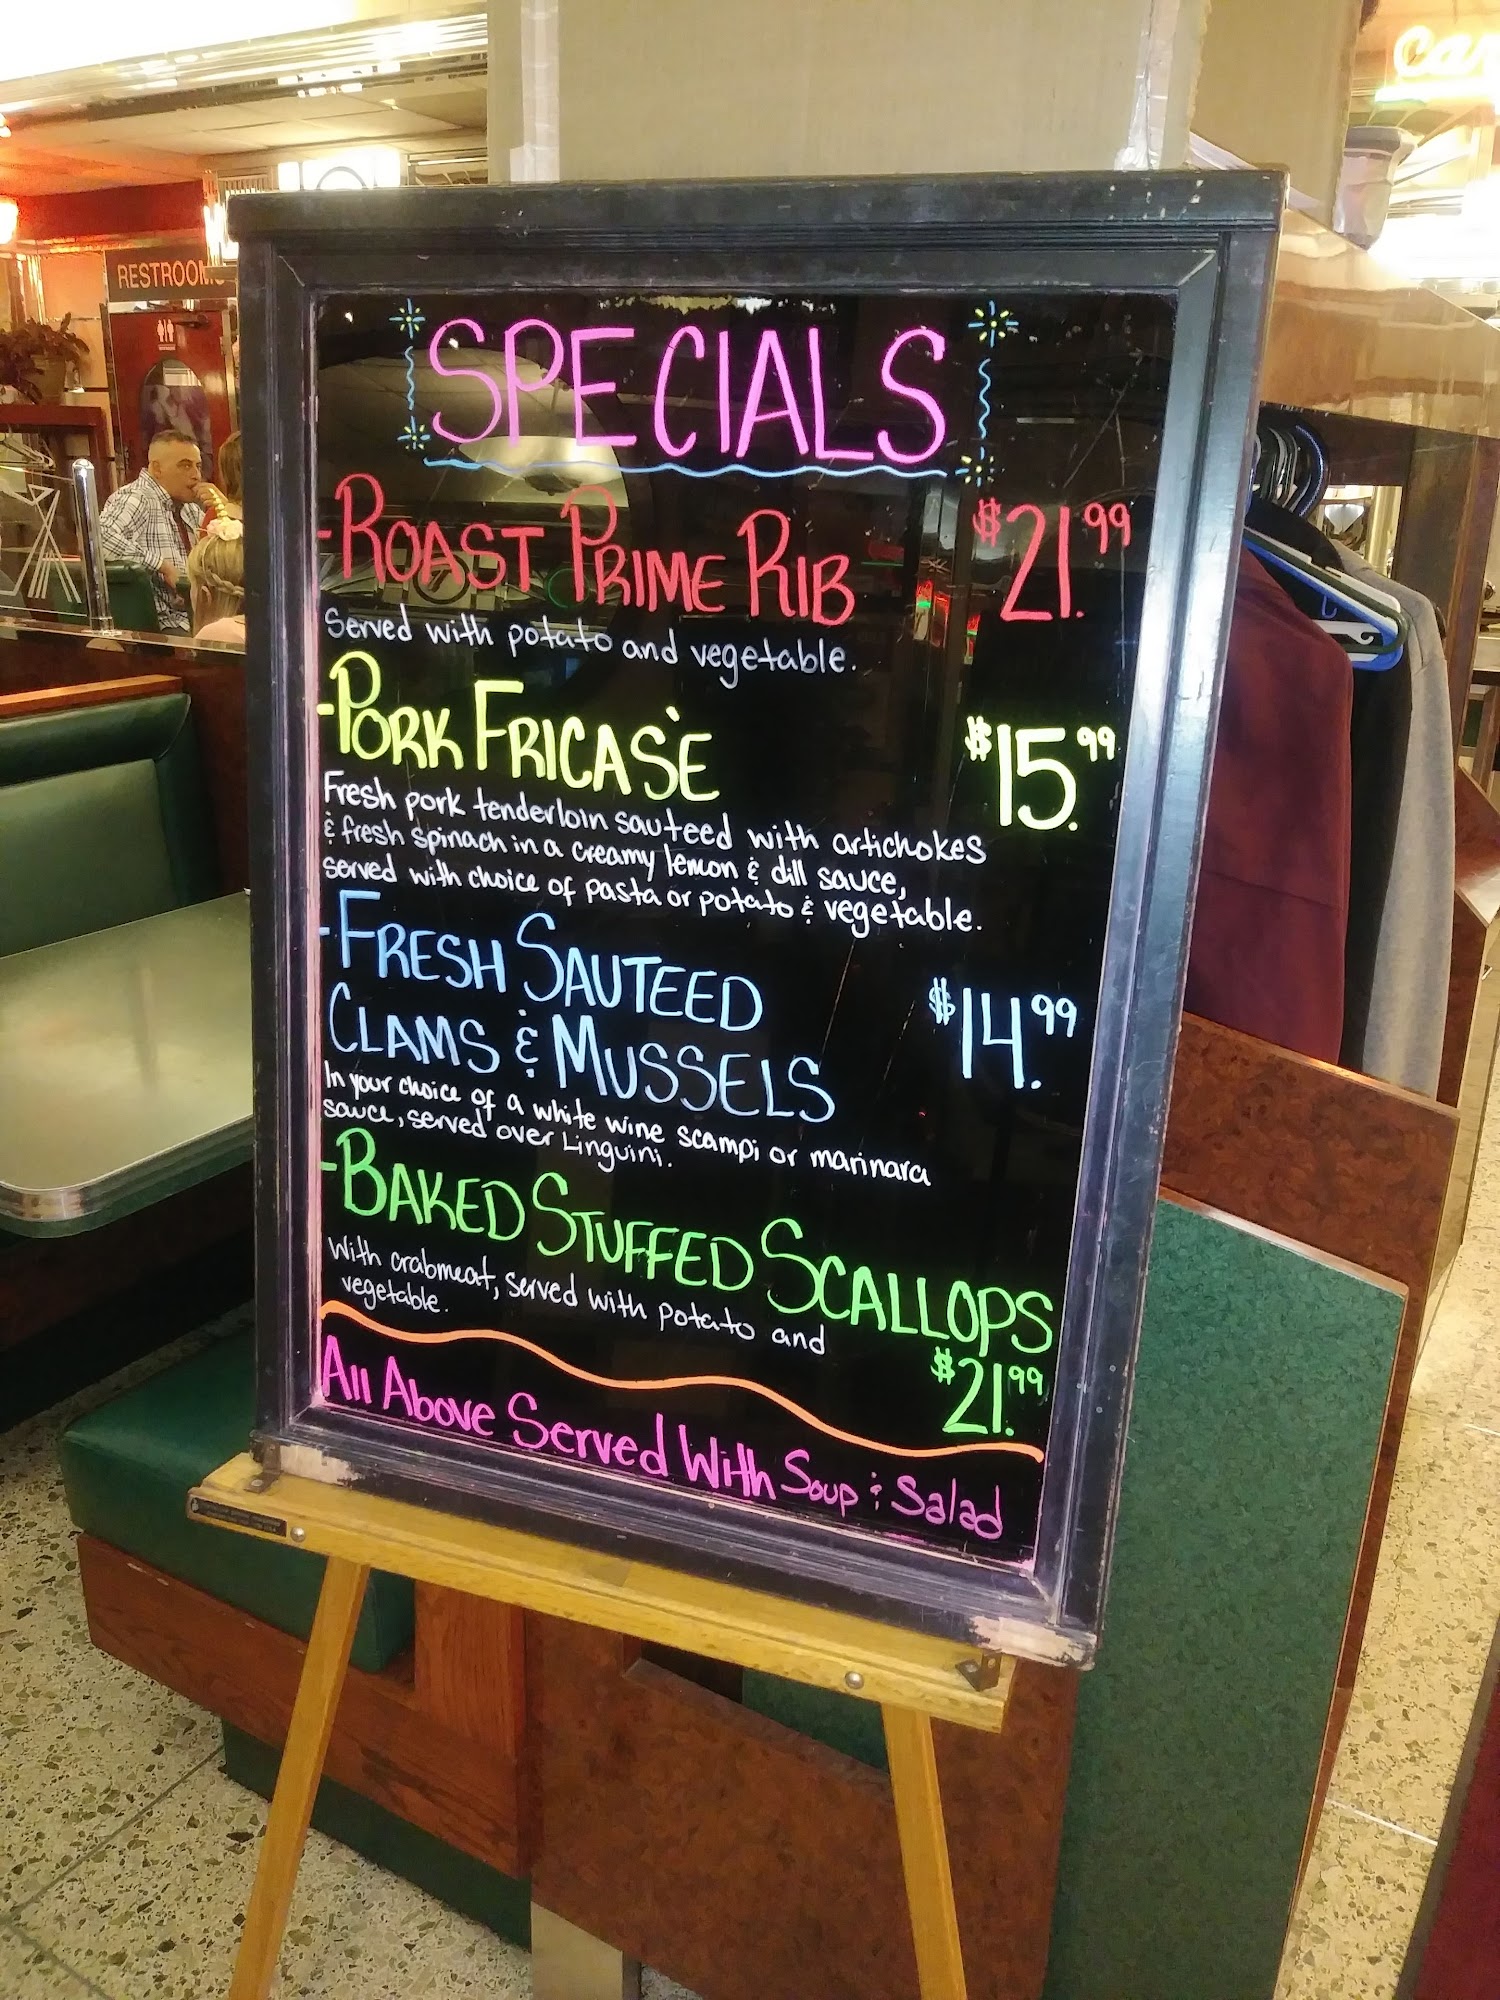 RESTROOMS
SPECIALS
-ROAST PRIME RIB $21.99
Served with potato and vegetable.
-PORK FRICASÈE $15.99
Fresh pork tenderloin sauteed with artichokes
& fresh spinach in a creamy lemon & dill sauce,
served with choice of pasta or potato & vegetable.
-FRESH SAUTEED
CLAMS & MUSSELS $14.99
In your choice of a white wine scampi or marinara
sauce, served over Linguini.
-BAKED STUFFED SCALLOPS
With crabmeat, served with potato and
vegetable.
$21.99
All Above Served With Soup & Salad